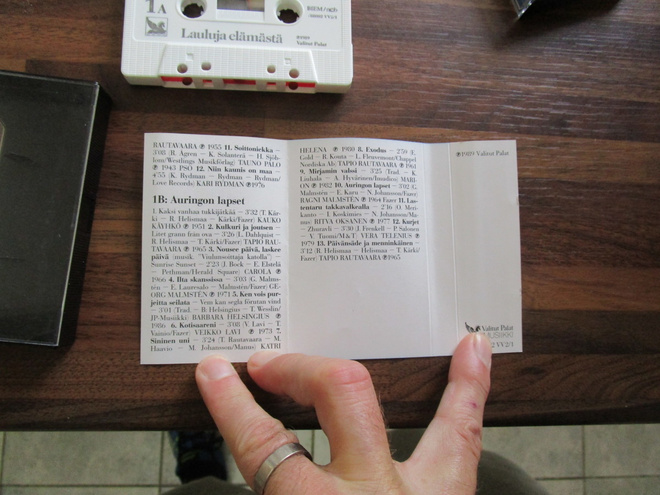 1A
BIEM/ncb
Lauluja elämästä
℗1989
Valitut Palat
RAUTAVAARA ℗ 1955 11. Soittoniekka –
3'08 (R. Ågren – K. Solanterä – H. Sjöb-
lom/Westlings Musikförlag) TAUNO PALO
℗ 1943 PSO 12. Niin kaunis on maa –
4'55 (K. Rydman – Rydman/
Love Records) KARI RYDMAN ℗1976
1B: Auringon lapset
1. Kaksi vanhaa tukkijätkää – 3'32 (T. Kär-
ki – R. Helismaa – Kärki/Fazer) KAUKO
KÄYHKÖ ℗ 1951 2. Kulkuri ja joutsen –
Litet grann från ovan – 3'26 (L. Dahlquist –
R. Helismaa – T. Kärki/Fazer) TAPIO RAU-
TAVAARA ℗ 1965 3. Nousee päivä, laskee
päivä (musik. "Viulunsoittaja katolla") –
Sunrise Sunset – 2'23 (J. Bock – E. Elstelä
– Pethman/Herald Square) CAROLA ℗
1966 4. Ilta skanssissa – 3'03 (G. Malms-
tén – E. Lauresalo – Malmstén/Fazer) GE-
ORG MALMSTÉN ℗ 1971 5. Ken vois pur-
jeitta seilata – Vem kan segla förutan vind
– 3'01 (Trad. – B. Helsingius – T. Wesslin/
JP-Musiikki) BARBARA HELSINGIUS ℗
1986 6. Kotisaareni – 3'08 (V. Lavi – T.
Vainio/Fazer) VEIKKO LAVI ℗ 1973 7.
Sininen uni – 3'24 (T. Rautavaara – M.
Haavio – M. Johansson/Manus) KATRI
HELENA ℗ 1980 8. Exodus – 2'59 (E.
Gold – R. Kouta – L. Fleuremont/Chappel
Nordiska Ab) TAPIO RAUTAVAARA ℗ 1961
9. Mirjamin valssi – 3'25 (Trad. – K.
Liuhala – A. Hyvärinen/Imudico) MARI-
ON ℗ 1982 10. Auringon lapset – 3'02 (G.
Malmstén – E. Karu – N. Johansson/Fazer)
RAGNI MALMSTÉN ℗ 1964 Fazer 11. Las-
tentaru takkavalkealla – 2'46 (O. Meri-
kanto – I. Koskimies – N. Johansson/Ma-
nus) RITVA OKSANEN ℗ 1977 12. Kurjet –
Zhuravli – 3'30 (J. Frenkell – P. Salonen
– Y. Tuomi/M&T) VERA TELENIUS ℗
1979 13. Päivänsäde ja menninkäinen –
3'12 (R. Helismaa – Helismaa – T. Kärki/
Fazer) TAPIO RAUTAVAARA ℗1965
℗1989 Valitut Palat
Valitut Palat
MUSIIKKI
2 VV2/1